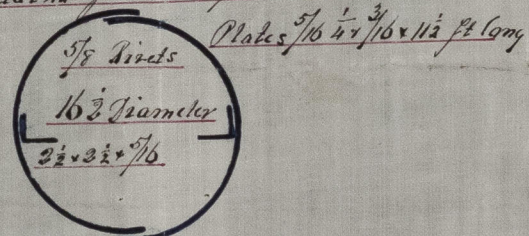 Plates 5/16 1/4 x 3/16 x 11 1/2 ft long
5/8 Rivets
16 1/2 Diameter
2 1/2 x 2 1/2 x 5/16